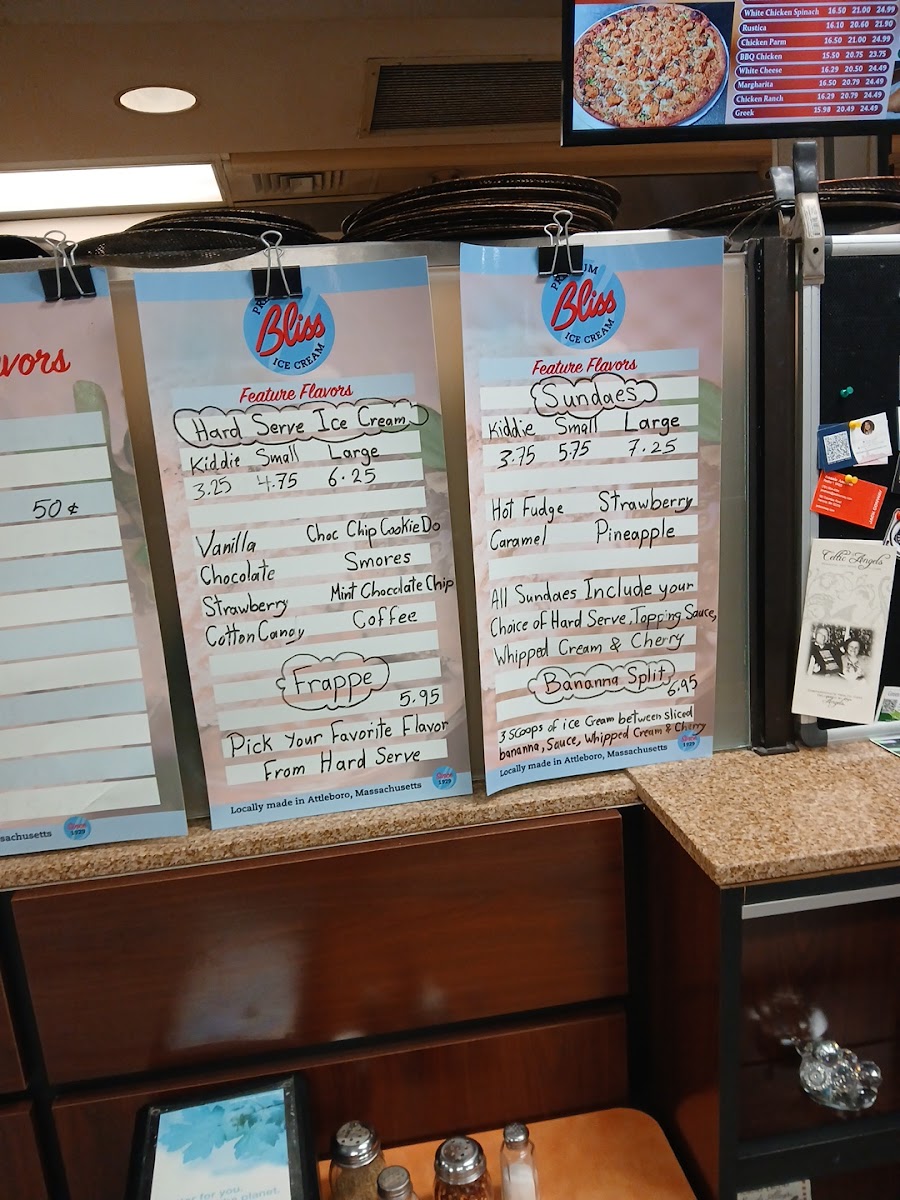 White Chicken Spinach 16.50 21.00 24.99
Rustica 16.10 20.60 21.90
Chicken Parm 16.50 21.00 24.99
BBQ Chicken 15.50 20.75 23.75
White Cheese 16.29 20.50 24.49
Margharita 16.50 20.79 24.49
Chicken Ranch 16.29 20.79 24.49
Greek 15.98 20.49 24.49
vors
50¢
sachusetts
Since 1929
PREMIUM
Bliss
ICE CREAM
Feature Flavors
Hard Serve Ice Cream
Kiddie Small Large
3.25 4.75 6.25
Vanilla Choc Chip Cookie Do
Chocolate Smores
Strawberry Mint Chocolate Chip
Cotton Candy Coffee
Frappe
5.95
Pick Your Favorite Flavor
From Hard Serve
Locally made in Attleboro, Massachusetts
Since 1929
PREMIUM
Bliss
ICE CREAM
Feature Flavors
Sundaes
Kiddie Small Large
3.75 5.75 7.25
Hot Fudge Strawberry
Caramel Pineapple
All Sundaes Include your
Choice of Hard Serve, Topping Sauce,
Whipped Cream & Cherry
Bananna Split
6.95
3 Scoops of ice Cream between sliced
bananna, Sauce, Whipped Cream & Cherry
Locally made in Attleboro, Massachusetts
Since 1929
Celtic Angels
Angels
for you.
planet.